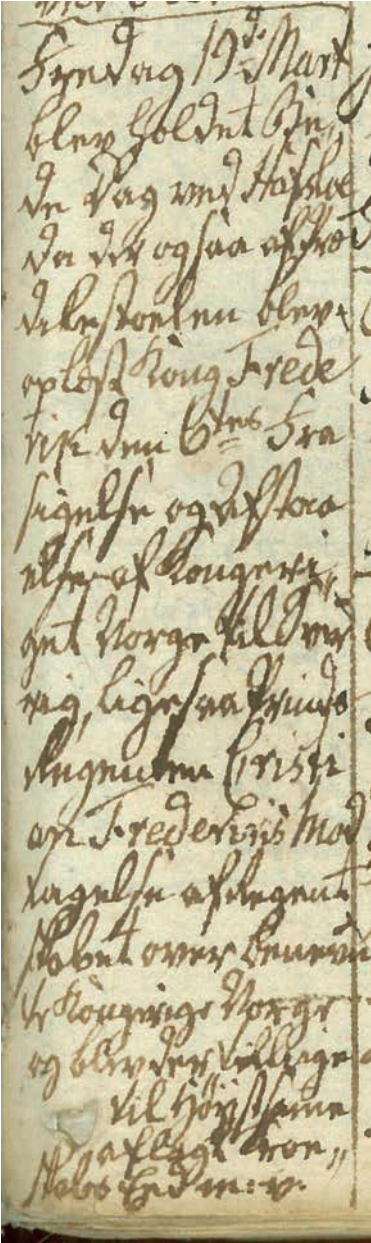 Fredag 19de Mart
blev holdet Be„
de Dag ved Hafsloe
da der ogsaa af Præ
dikestoelen blev
oplæst Kong Frede
rik den 6tes Fra
sigelse og Afstaa
else af Kongeri„
get Norge til Sver
rig, ligesaa Prinds
Regenten Cristi
an Frederiks Mod
tagelse af Regent
skabet over benevn
te Kongerige Norge
og blev der tillige
til Høistsamme
aflagt Troe„
skabs Eed m: v.